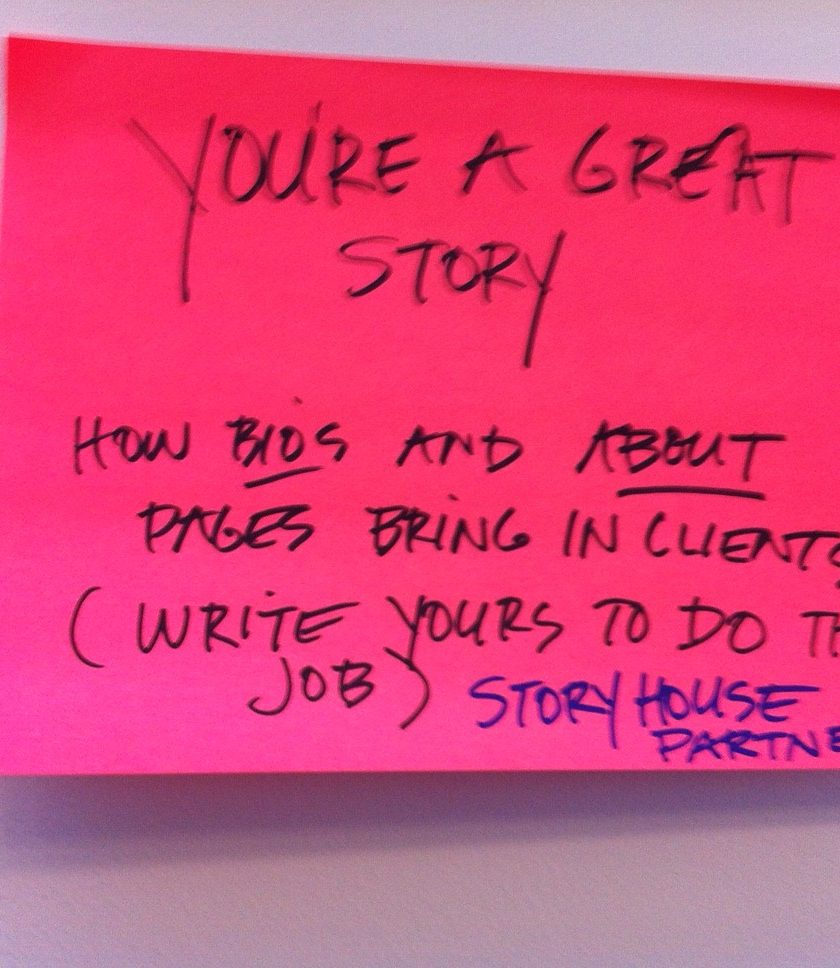 YOU'RE A GREAT
STORY
HOW BIOS AND ABOUT
PAGES BRING IN CLIENTS
(WRITE YOURS TO DO TH
JOB)
STORY HOUSE
PARTNE